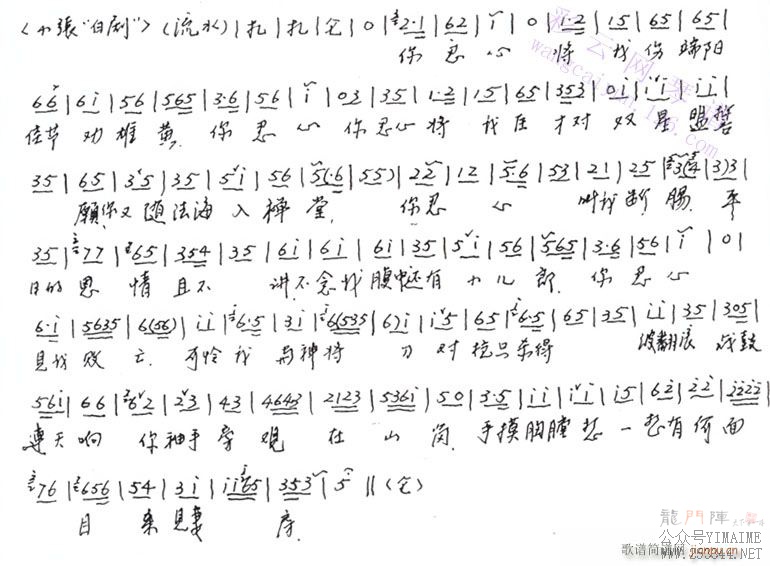 <小張“白剧”>(流水)|扎|扎|仓|0|2·1|62|i|0|i·2|15|65|65|
你忍心 将 我伤端阳
66|6i|56|565|3·6|56|i|03|35|1·2|15|65|353|0i|ii|ii|
佳节劝雄黄.你忍心你忍心将我在才对双星盟誓
35|65|35|35|5i|56|5(·6|55)|22|12|5·6|53|21|25|3(4|3)3|
願你又随法海入禅堂.你忍心叫我断腸.平
35|77|65|354|35|6i|6i|6i|35|5i|56|565|3·6|56|i|0|
日的恩情且不讲不念我腹中还有小儿郎.你忍心
6·i|5635|6(56)|ii|6·5|3i|6(535|6)i|i5|65|6·5|65|35|ii|35|305|
見我败亡可怜我与神将刀对枪只杀得波翻浪滚战鼓
56i|66|62|23|43|4643|2123|536i|50|3·5|ii|ii|i5|62|22|i222|
連天响你袖手旁观在山岗.手摸胸膛想一想有何面
76|656|54|3i|ii65|353|5‖(仓)
目来見妻房.
龍門陣
公众号YIMAIME
歌谱简谱网 jianpu.cn
www.253344.NET
彩云网
wangcaiyun.126.com